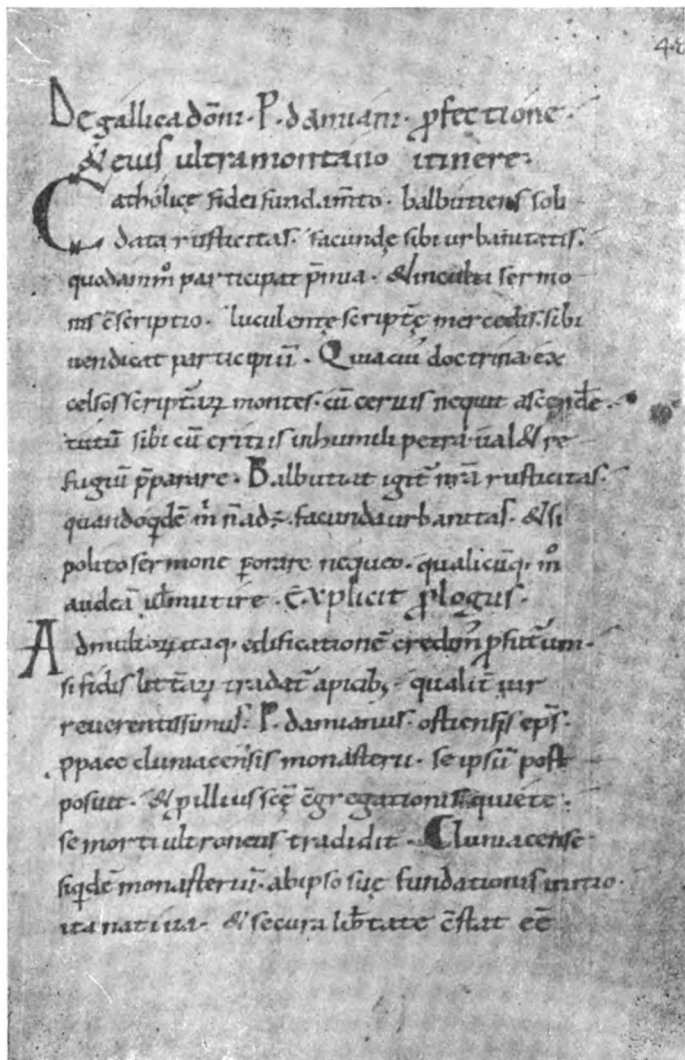 4·8
De gallica dōni· P· damiani· ꝓfectione·
& eius ultramontano itinere·
Catholicę fidei fundam̄to· balbutiens soli
data rusticitas· facundę sibi urbanitatis·
quodam̄m participat p̄mia· & inculti sermo
nis c̄scriptio· luculentę scriptę mercedis· sibi
uendicat participiū· Quia cui doctrina ex
celsos scripturaꝝ montes· cū ceruis nequit ascend̄e·
tutū sibi cū eritiis in humili petra ual& re
fugiū p̄parare· Balbutiat igit̄ nr̄a rusticitas·
quandoq̇dē m̄ n̄ adē· facunda urbanitas· & si
polito sermone ꝑorare nequeo· qualicūq· m̊
audeā ul̄ mutire· Explicit ꝓlogus·
Ad multoꝝ itaq· edificationē credim̄ ꝓfuturum·
si fidis litt̄aꝝ tradat̄ apicib; qualit̄ uir
reuerentissimus· P· damianus· ostiensis ep̄s·
ꝓ pace cluniacensis monasterii· se ipsū post
posuit· & ꝓ illius scę c̄gregationis quiete·
se morti ultroneus tradidit· Cluniacense
siq̇dē monasteriū· ab ipso suę fundationis initio·
ita natiua· & secura lib̄tate c̄stat eē